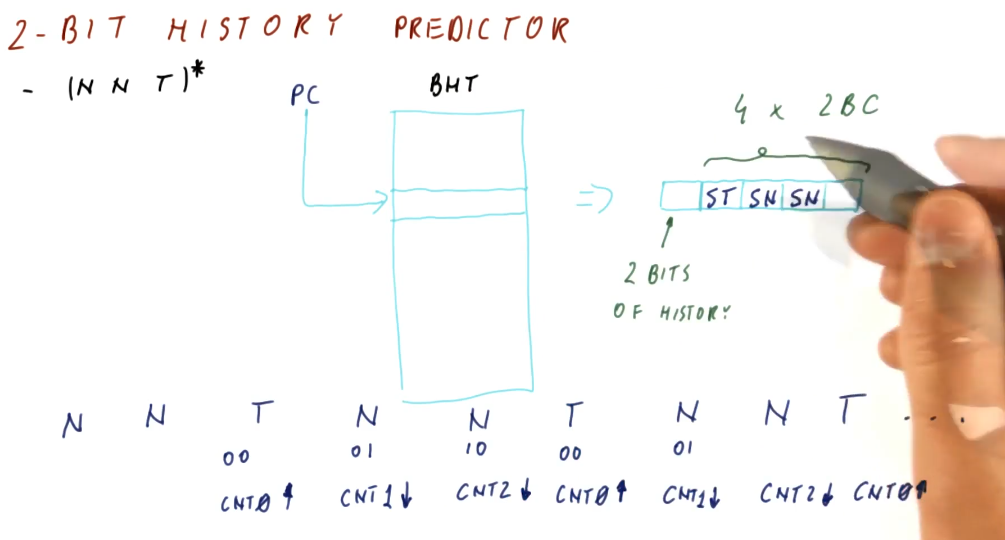 2-BIT HISTORY PREDICTOR
- (N N T)*
PC
BHT
4 x 2BC
⇒
ST SN SN
2 BITS
OF HISTORY
N N T N N T N N T ...
00 01 10 00 01
CNT0↑ CNT1↓ CNT2↓ CNT0↑ CNT1↓ CNT2↓ CNT0↑